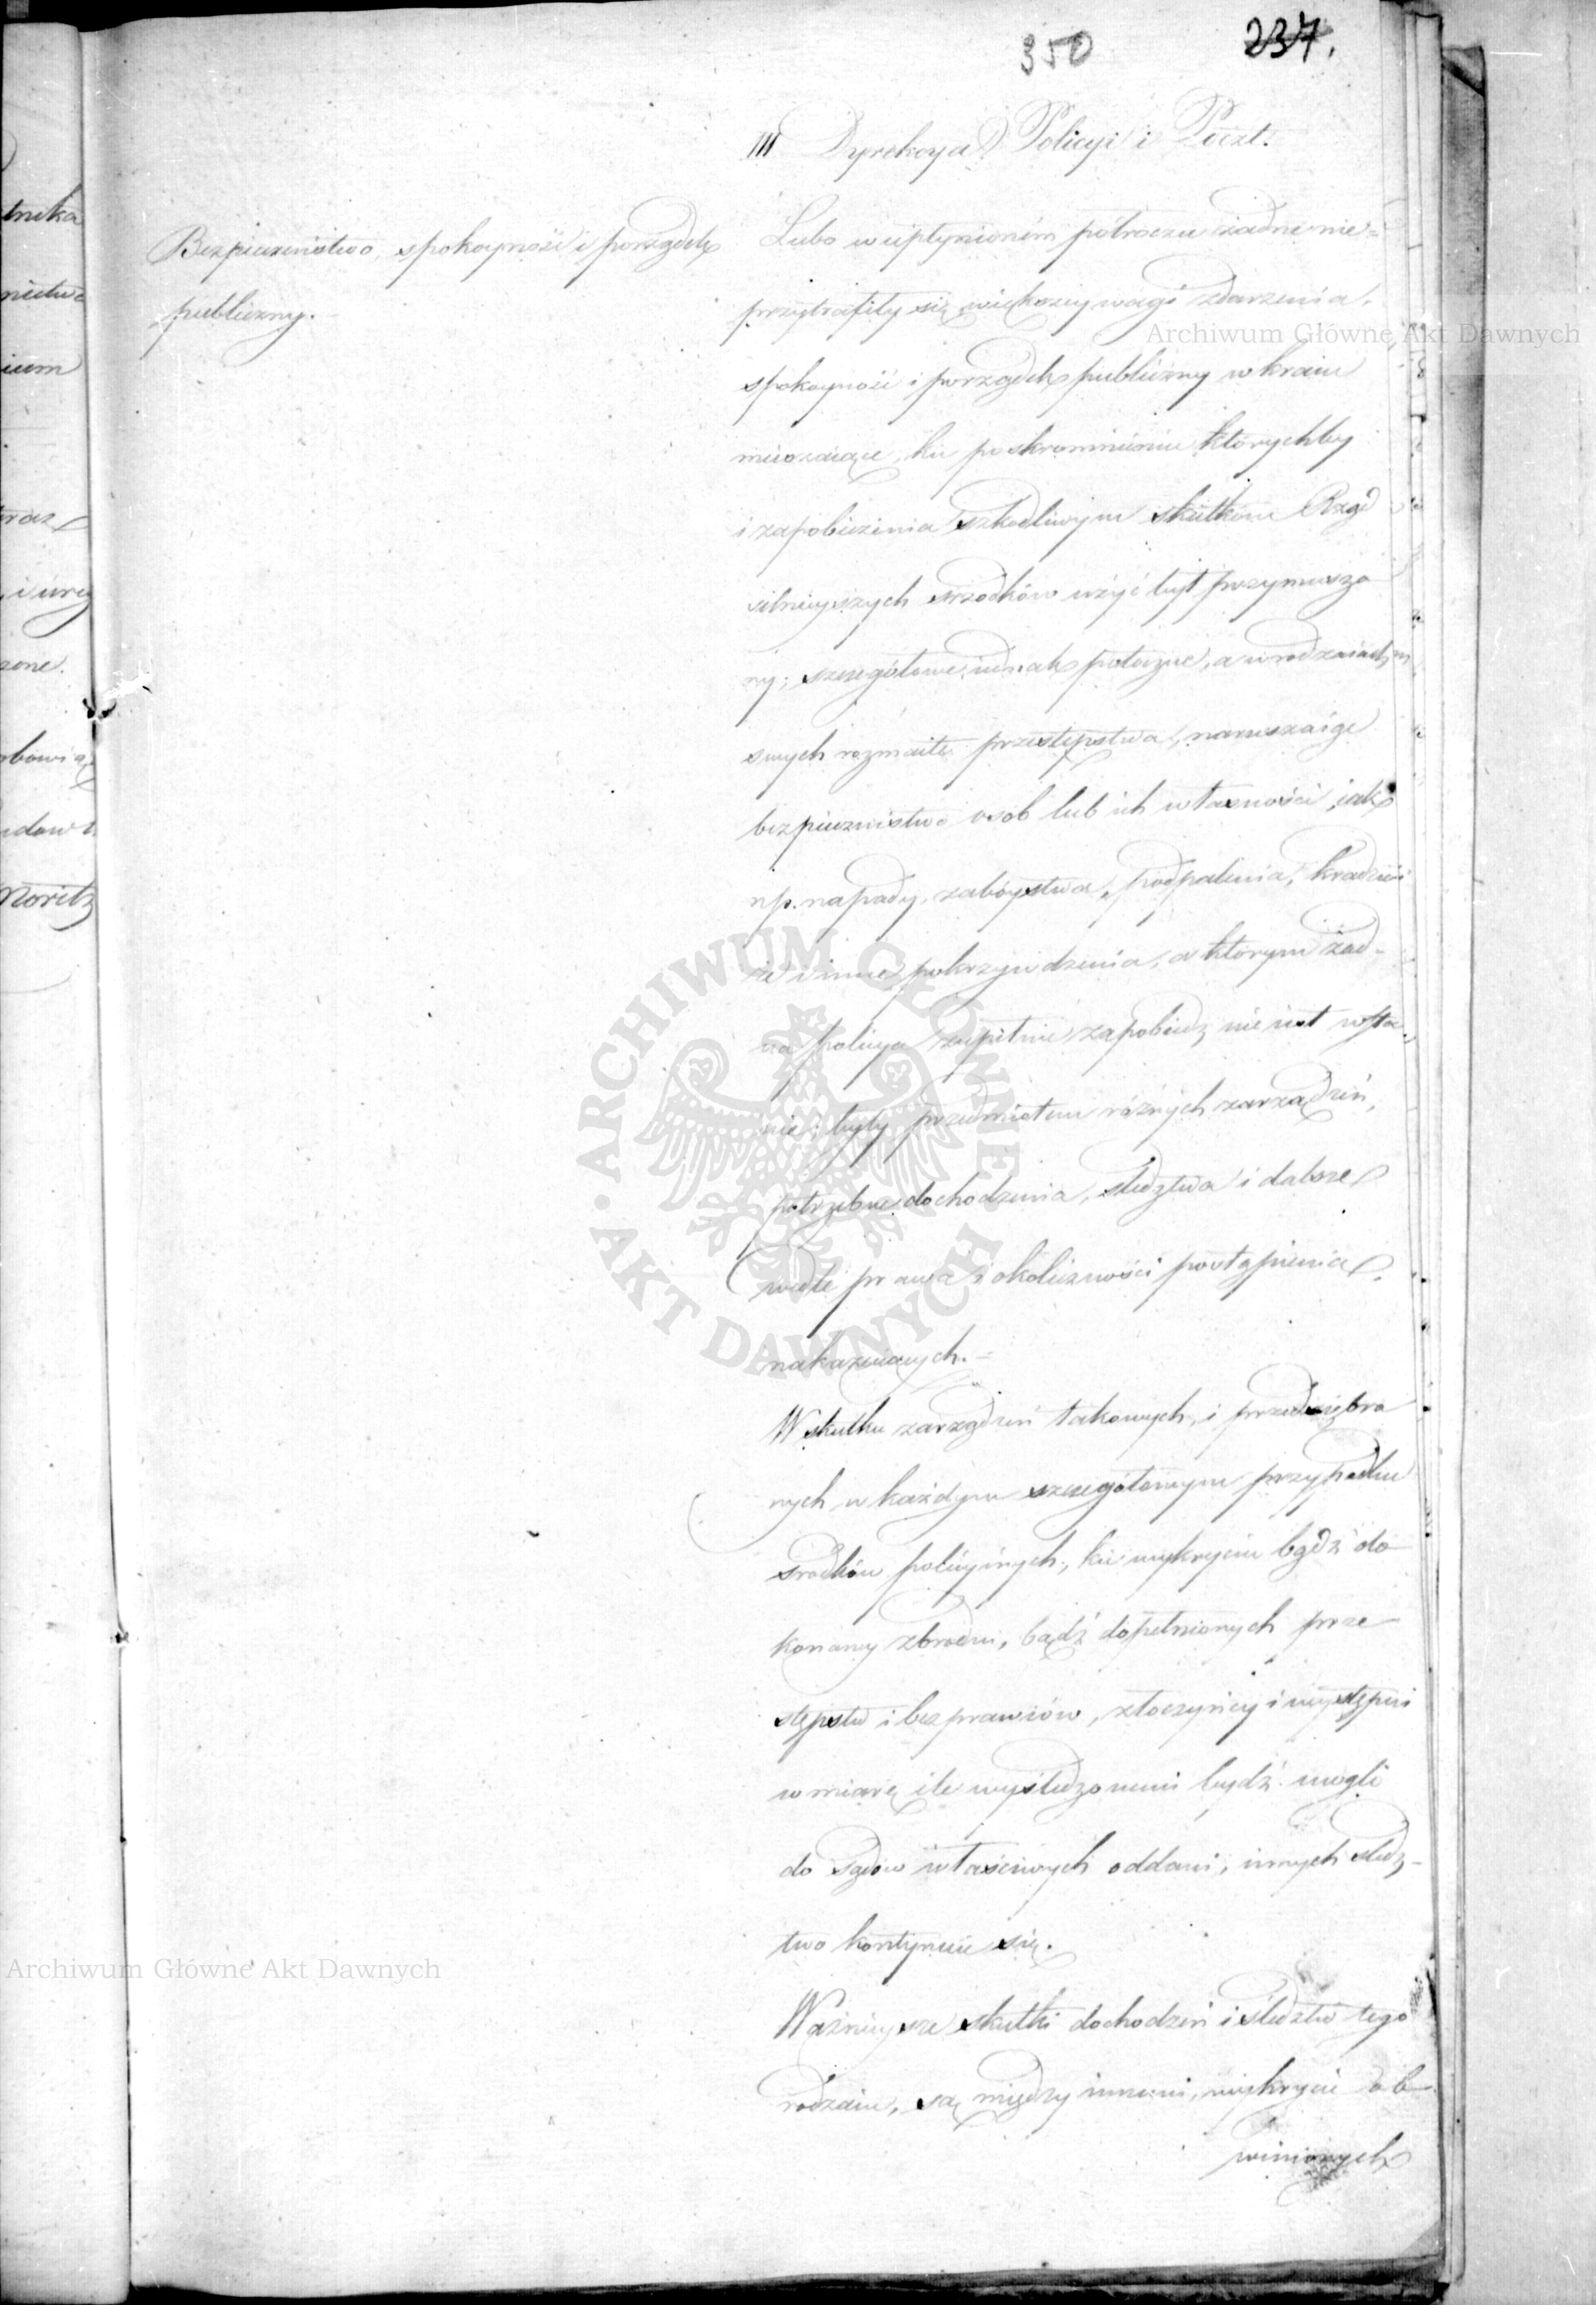 350
237.
III Dyrekcya Policyi i Poczt.
Bezpieczeństwo, spokoyność i porządek
publiczny.
Lubo w upłynioném półroczu żadne nie=
przytrafiły się większey wagi zdarzenia,
spokoyność i porządek publiczny w kraiu
mieszaiące, ku poskromnieniu którychby
i zapobieżenia szkodliwym skutkom Rząd
silnieyszych srzodków użyć był przymuszo
ny; szczegółowe iednak potoczne, a w rodzaiach
swych rozmaite przestępstwa, naruszaiące
bezpieczeństwo osob lub ich własności, iak
np. napady, zabóystwa, podpalenia, kradzie
że i inne pokrzywdzenia, a którym żad-
na policya zupełnie zapobiedz nie iest w sta
nie; były przedmiotem różnych zarządzeń,
potrzebne dochodzenia, sledztwa i dalsze
wedle prawa i okoliczności postąpienia
nakazuiących.
W skutku zarządzeń takowych, i przedsiębra
nych w każdym szczegółowym przypadku
srodków policyinych, ku wykryciu bądź do
konaney zbrodni, bądź dopełnionych prze
stępstw i bezprawiów, złoczyńcy i występni
w miarę ile wyśledzonemi bydź mogli
do Sądów właściwych oddani, innych śledz-
two kontynuie się.
Ważnieysze skutki dochodzeń i śledztw tego
rodzaiu, są między innemi, wykrycie ob
winionych
tnika
nictwa
ium
zone.
Moritz
Archiwum Główne Akt Dawnych
ARCHIWUM GŁÓWNE AKT DAWNYCH
Archiwum Główne Akt Dawnych